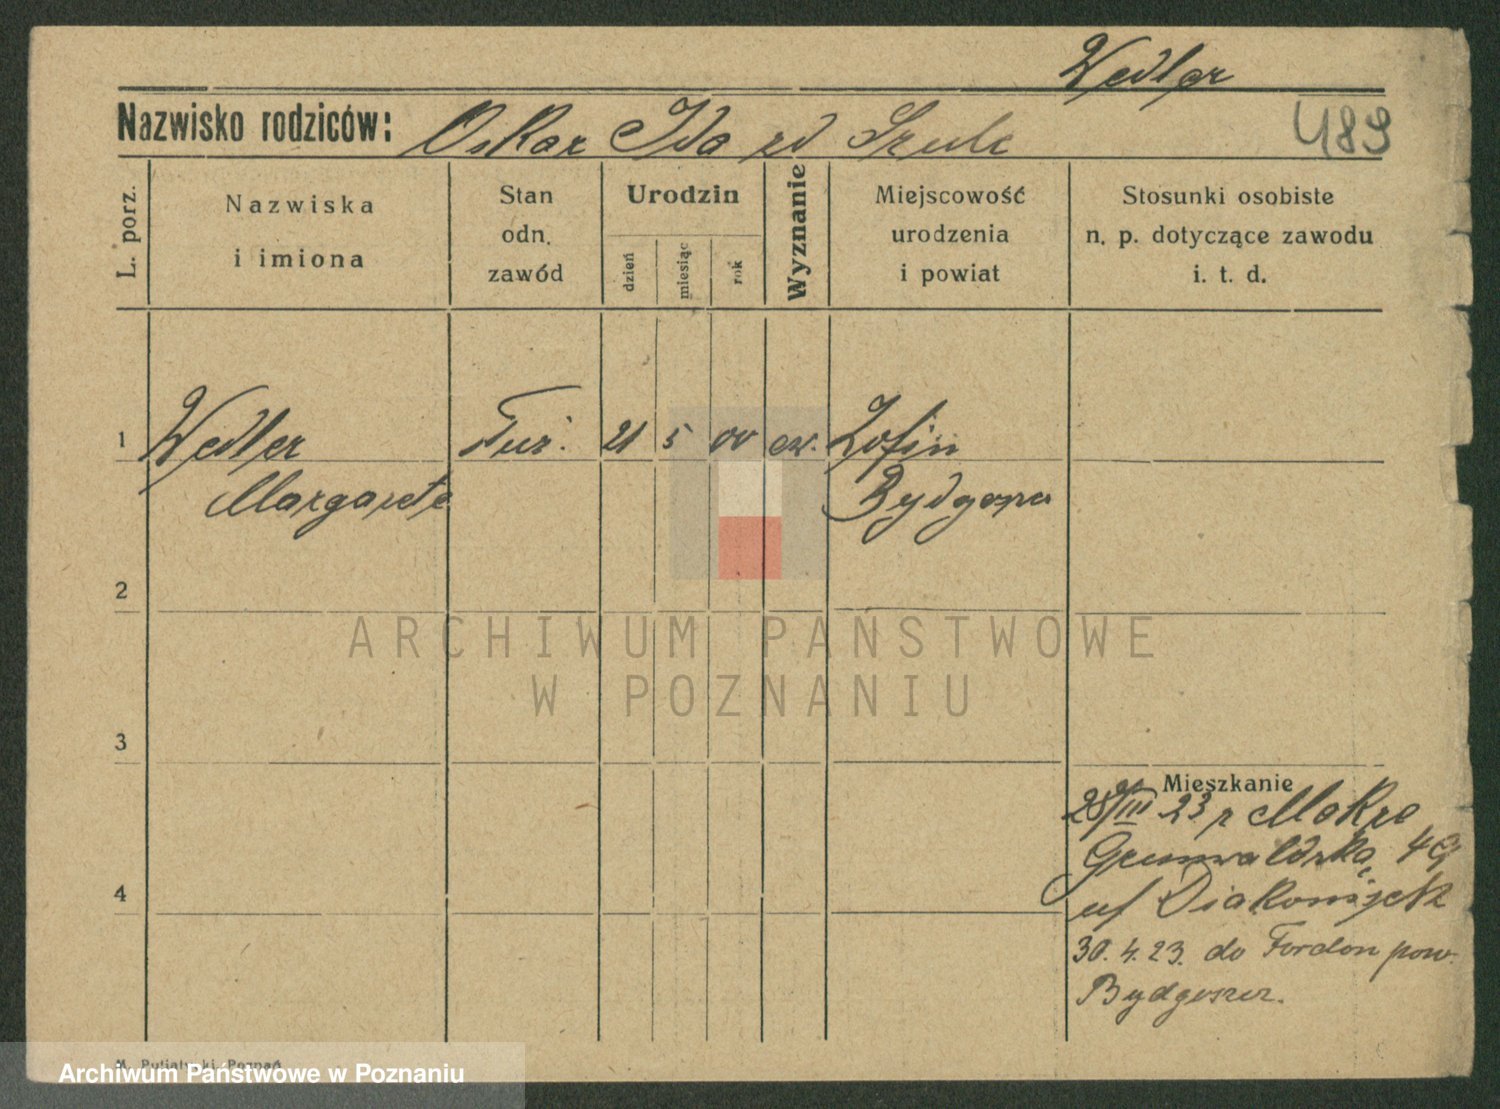 Wedler
Nazwisko rodziców: Oskar Ida zd Szulc
489
L. porz.
Nazwiska
i imiona
Stan
odn.
zawód
Urodzin
dzień
miesiąc
rok
Wyznanie
Miejscowość
urodzenia
i powiat
Stosunki osobiste
n. p. dotyczące zawodu
i. t. d.
1 Wedler 21 5 00 ew. Zofin
Margarete Bydgoszcz
2
ARCHIWUM PAŃSTWOWE
W POZNANIU
3
Mieszkanie
28/III 23 r Mokre
Grunwaldzka 49
4
uf Diakonijctk
30. 4. 23. do Fordon pow.
Bydgoszcz.
M. Putiatycki, Poznań
Archiwum Państwowe w Poznaniu